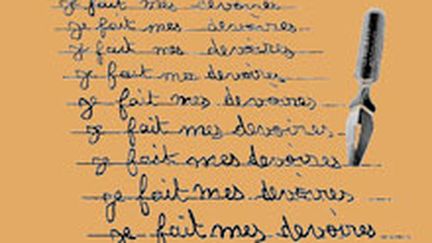 je fait mes devoires
je fait mes devoires
je fait mes devoires
je fait mes devoires
je fait mes devoires
je fait mes devoires
je fait mes devoires
je fait mes devoires
je fait mes devoires